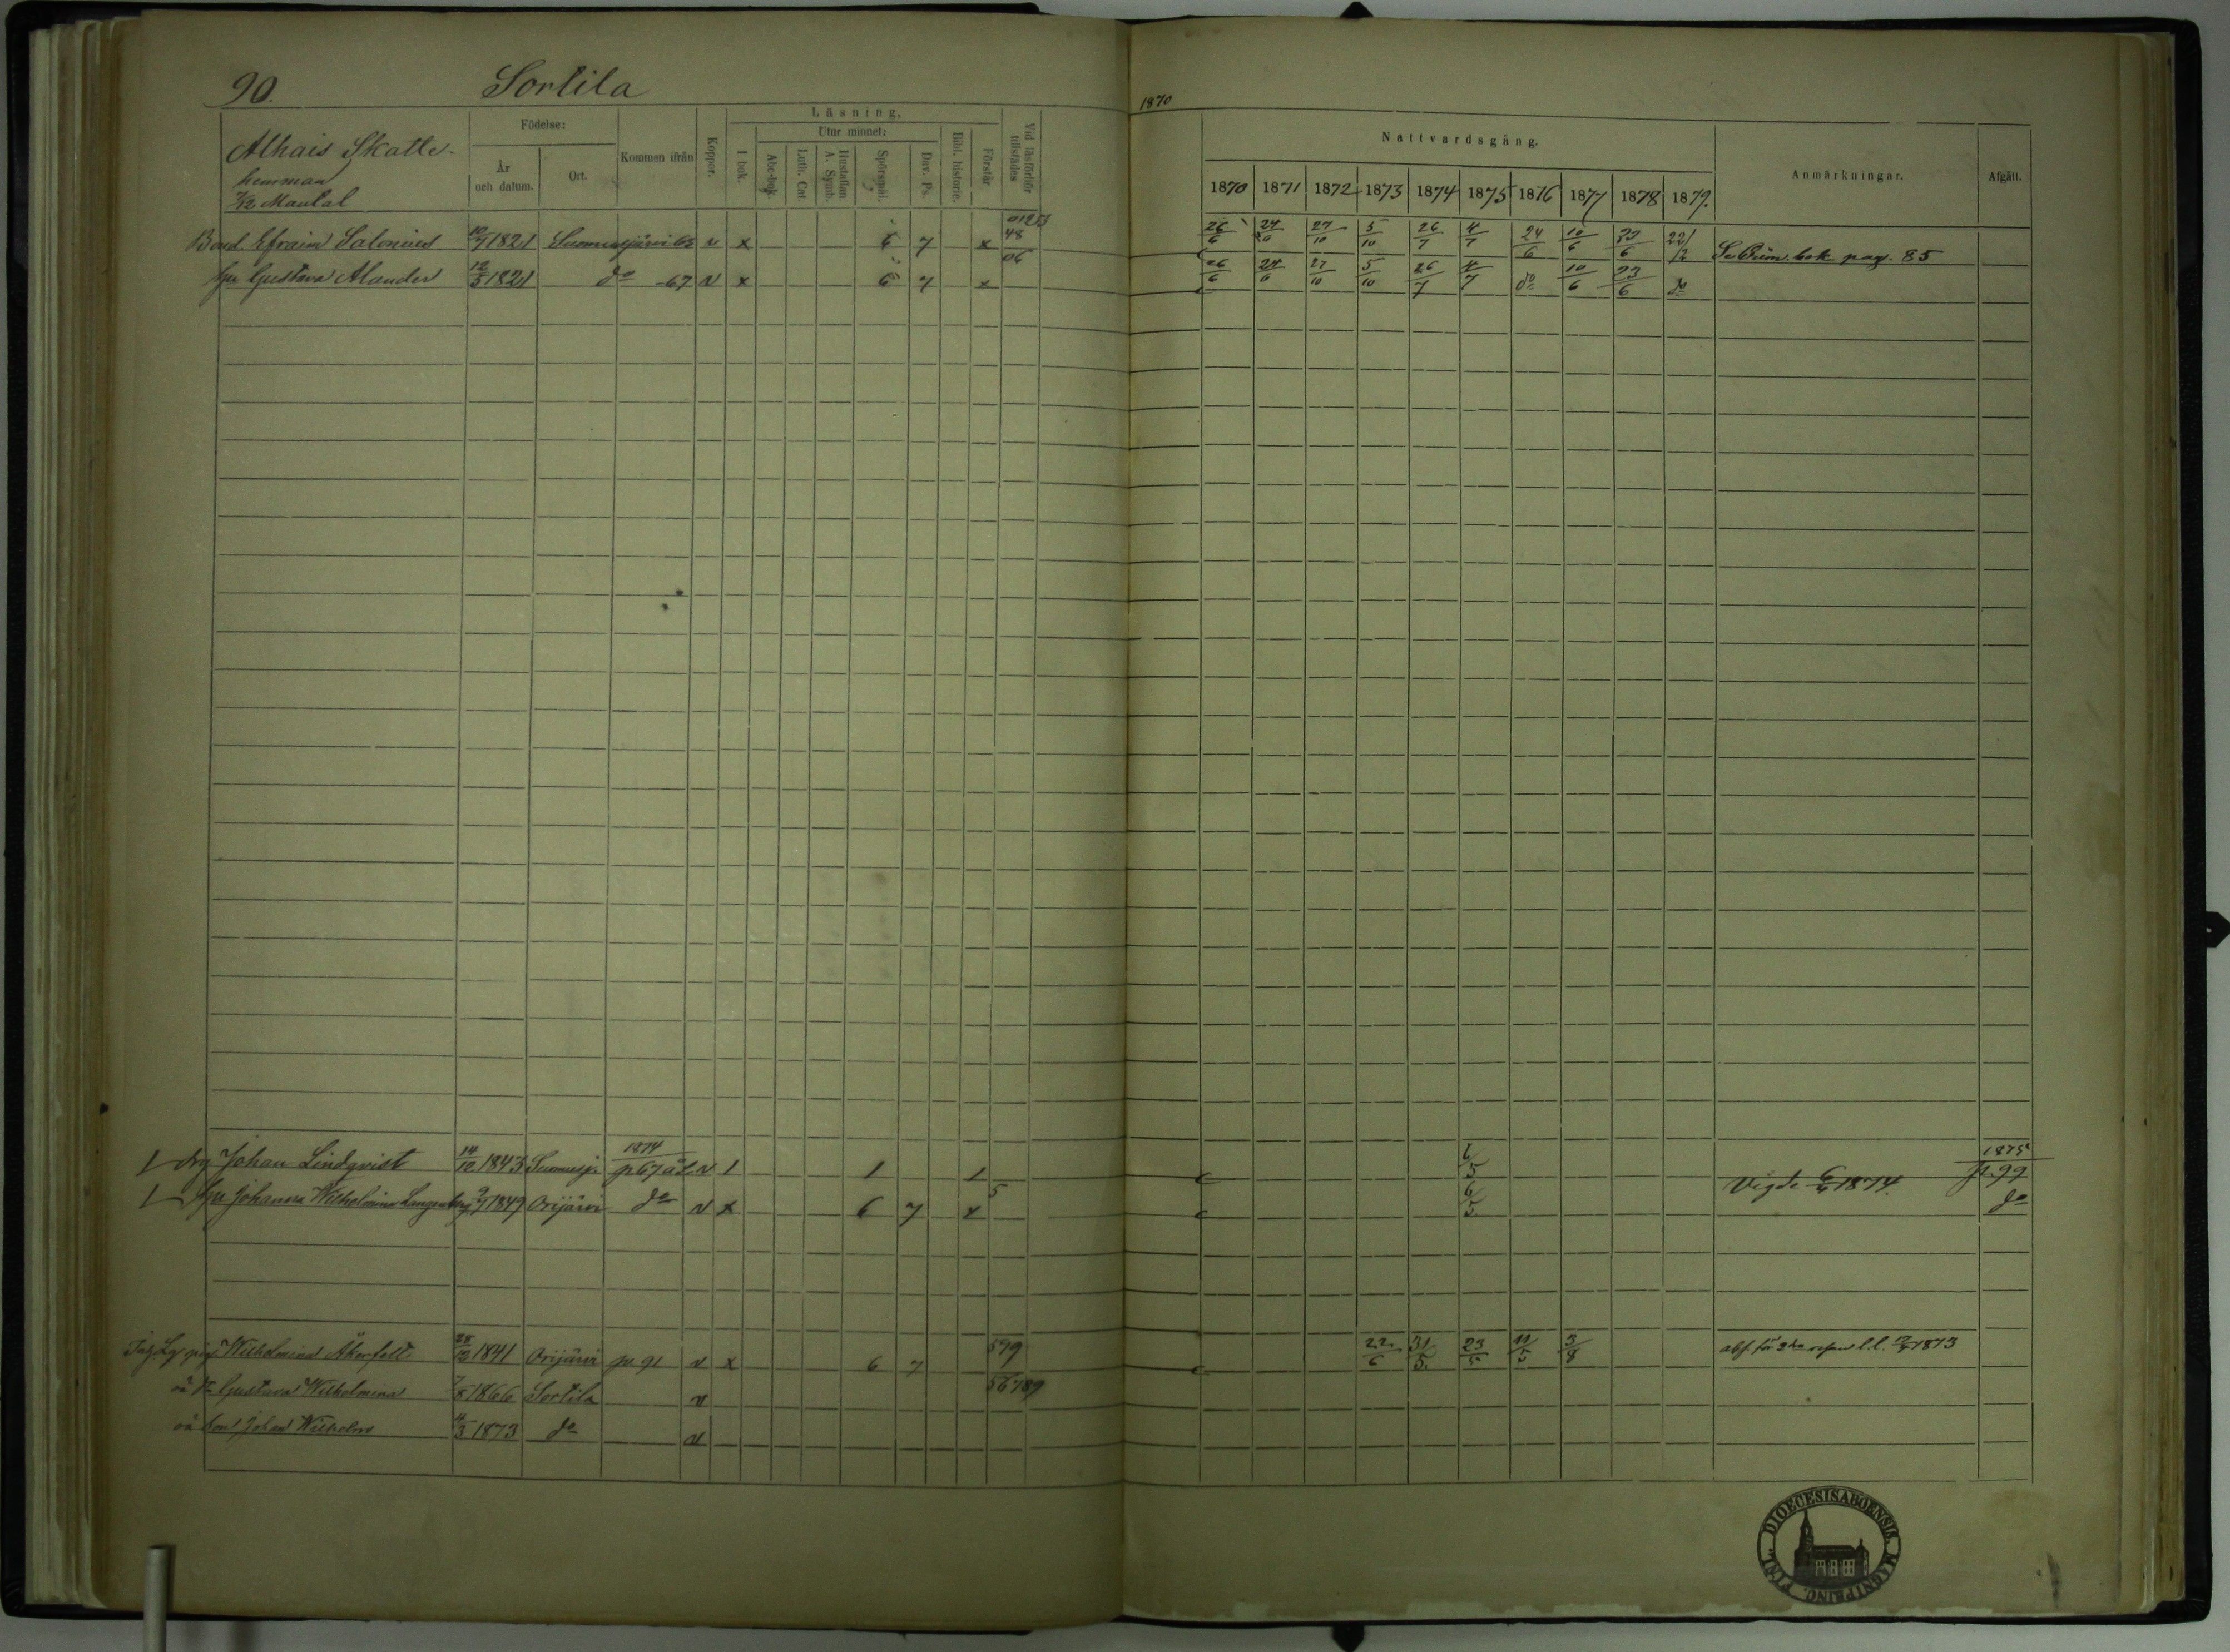 90. Sortila
1870
Alhais Skatte-
hemman
7/12 Mantal
Födelse:
År
och datum.
Ort.
Kommen ifrån
Koppor.
Läsning.
I bok.
Utur minnet:
Abc-bok.
Luth. Cat
Hustaflan
A. Symb.
Spörsmål.
Dav. Ps.
Bibl. historie.
Förstår
Vid läsförhör
tillstädes
Nattvardsgång.
1870 1871 1872 1873 1874 1875 1876 1877 1878 1879.
Anmärkningar.
Afgått.
Bond. Efraim Salonius 1821 Suomusjärvi 63 v x 6 7 x 48 26/6 24/6 27/10 5/10 26/7 4/7 24/6 10/6 23/6 22/12 pag. 85
hu Gustava Alander 12/5 1821 do -67 v x 6 7 x 06 26/6 24/6 27/10 5/10 26/7 4/7 do 10/6 23/6 do
drg Johan Lindqvist 14/12 1843 Suomusj. 1874 p 67 v 1 1 1 6/5 Vigde 1874. 1875 p. 99
hu Johanna Wilhelmina 1849 Orijärvi do v x 6 7 x 5 6/5 do
Wilhelmina Åkerfelt 28/12 1841 Orijärvi p. 91 v x 6 7 579 22/6 31/5 23/5 11/5 3/8 1873
oä dr Gustava Wilhelmina 1866 Sortila v 56789
oä Son Johan Wilhelm 1873 do v
DIOECESIS ABOENSIS. MAGN. PRINC. FINL.